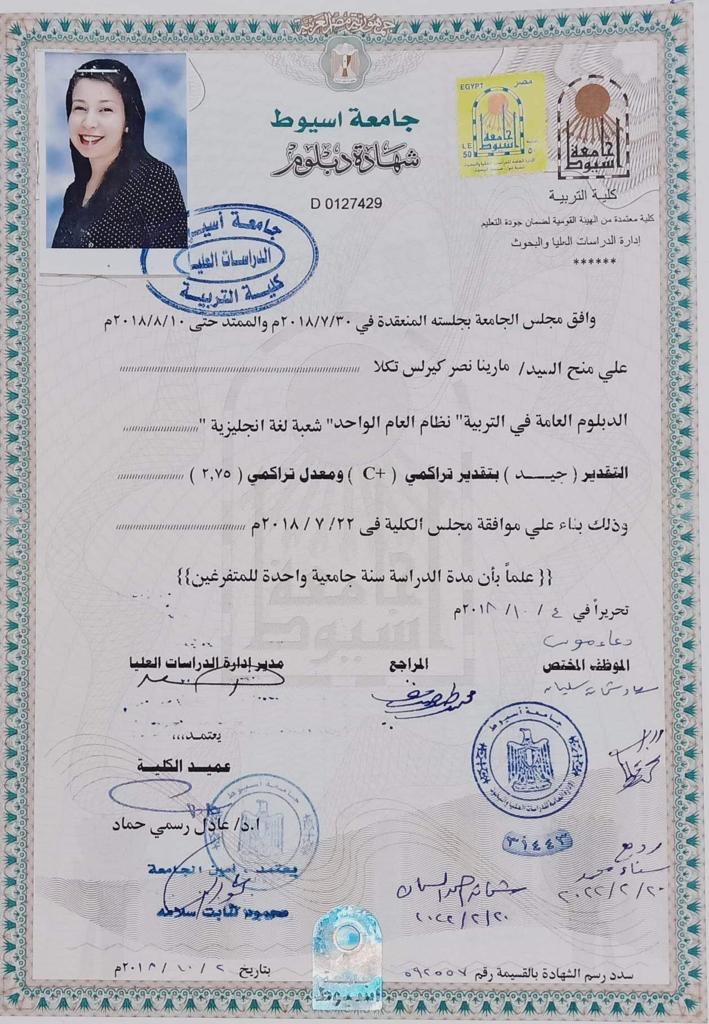 جمهورية مصر العربية
جامعة اسيوط
شهادة دبلوم
D 0127429
EGYPT مصر
LE 50
جامعة أسيوط
جامعة أسيوط
كلية التربية
كلية معتمدة من الهيئة القومية لضمان جودة التعليم
إدارة الدراسات العليا والبحوث
******
جامعة أسيوط
الدراسات العليا
كلية التربية
وافق مجلس الجامعة بجلسته المنعقدة في ٢٠١٨/٧/٣٠م والممتد حتى ٢٠١٨/٨/١٠م
علي منح السيد/ مارينا نصر كيرلس تكلا
الدبلوم العامة في التربية" نظام العام الواحد" شعبة لغة انجليزية "
التقدير ( جيـــد ) بتقدير تراكمي ( C+ ) ومعدل تراكمي ( ٢,٧٥ )
وذلك بناء علي موافقة مجلس الكلية فى ٢٢/ ٧ / ٢٠١٨م
{{ علماً بأن مدة الدراسة سنة جامعية واحدة للمتفرغين}}
تحريراً في ٤ / ١٠ / ٢٠١٨م
الموظف المختص
المراجع
مدير إدارة الدراسات العليا
يعتمد،،،
عميد الكلية
جامعة أسيوط
ا.د/ عادل رسمي حماد
٣١٤٤٣
يعتمد أمين الجامعة
محمود ثابت سلامه
٢٠٢٢/٢/٢٠
٢٠٢٢/٢/٢٠
سدد رسم الشهادة بالقسيمة رقم ٥٩٢٥٥٧ بتاريخ ٢ / ١٠ / ٢٠١٨م
أسيوط